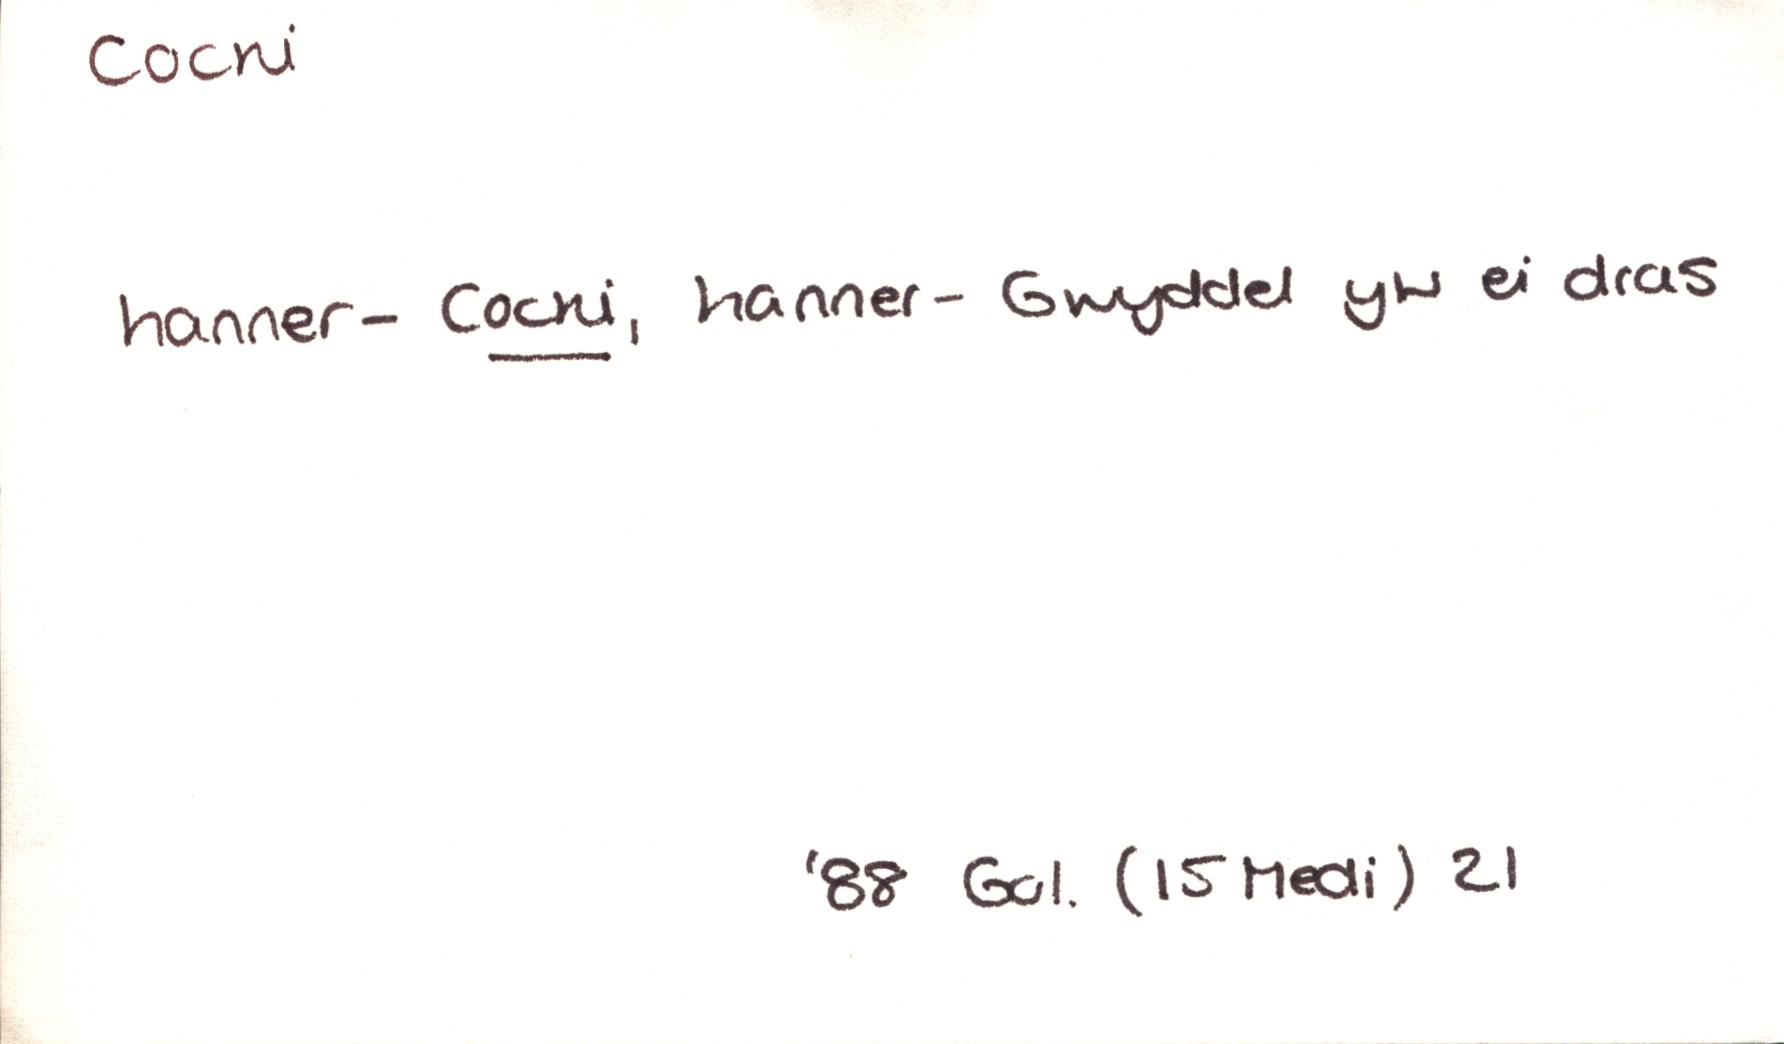 Cocni
hanner- Cocni, hanner- Gwyddel yw ei dras
'88 Gol. (15 Medi) 21